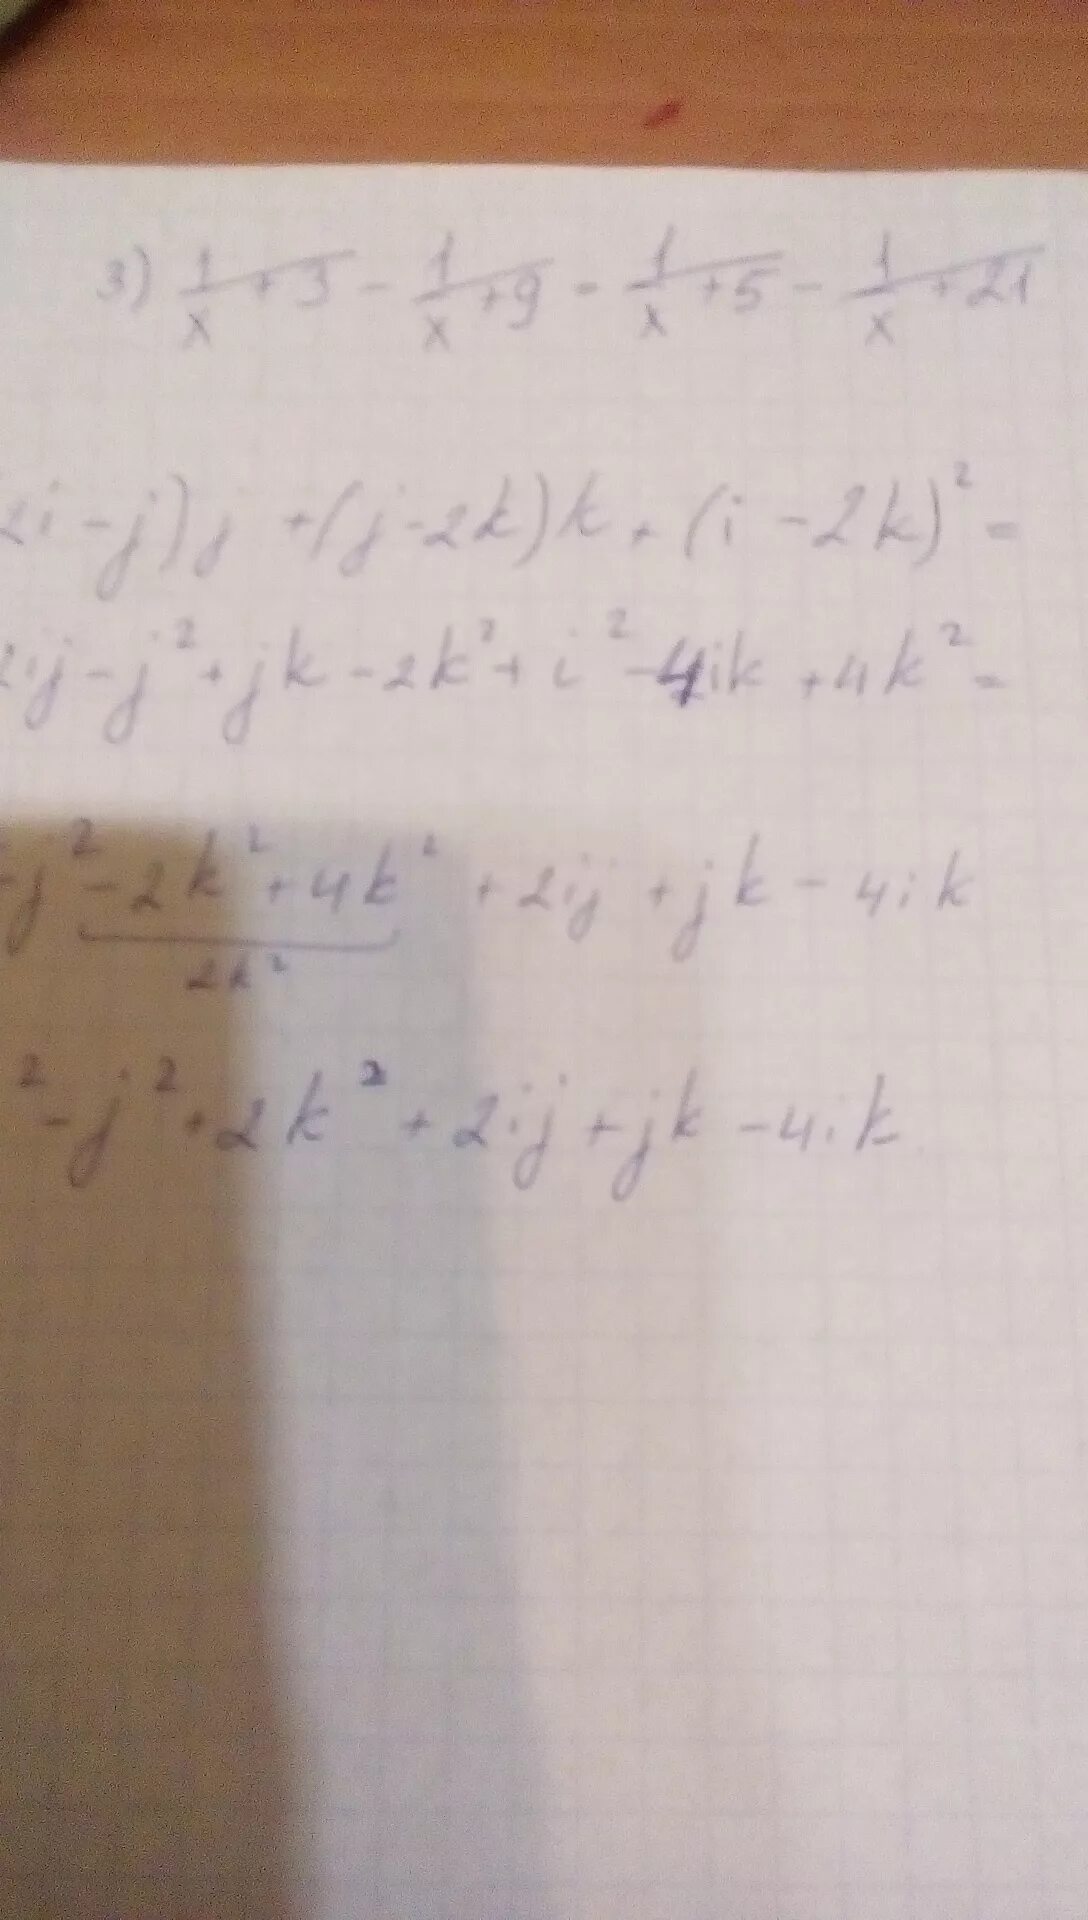 3) 1/x + 3 - 1/x + 9 = 1/x + 5 - 1/x + 21
2i - j) j + (j - 2k) k + (i - 2k)² =
2ij - j² + jk - 2k² + i² - 4ik + 4k² =
- j² - 2k² + 4k² + 2ij + jk - 4ik
2k²
² - j² + 2k² + 2ij + jk - 4ik